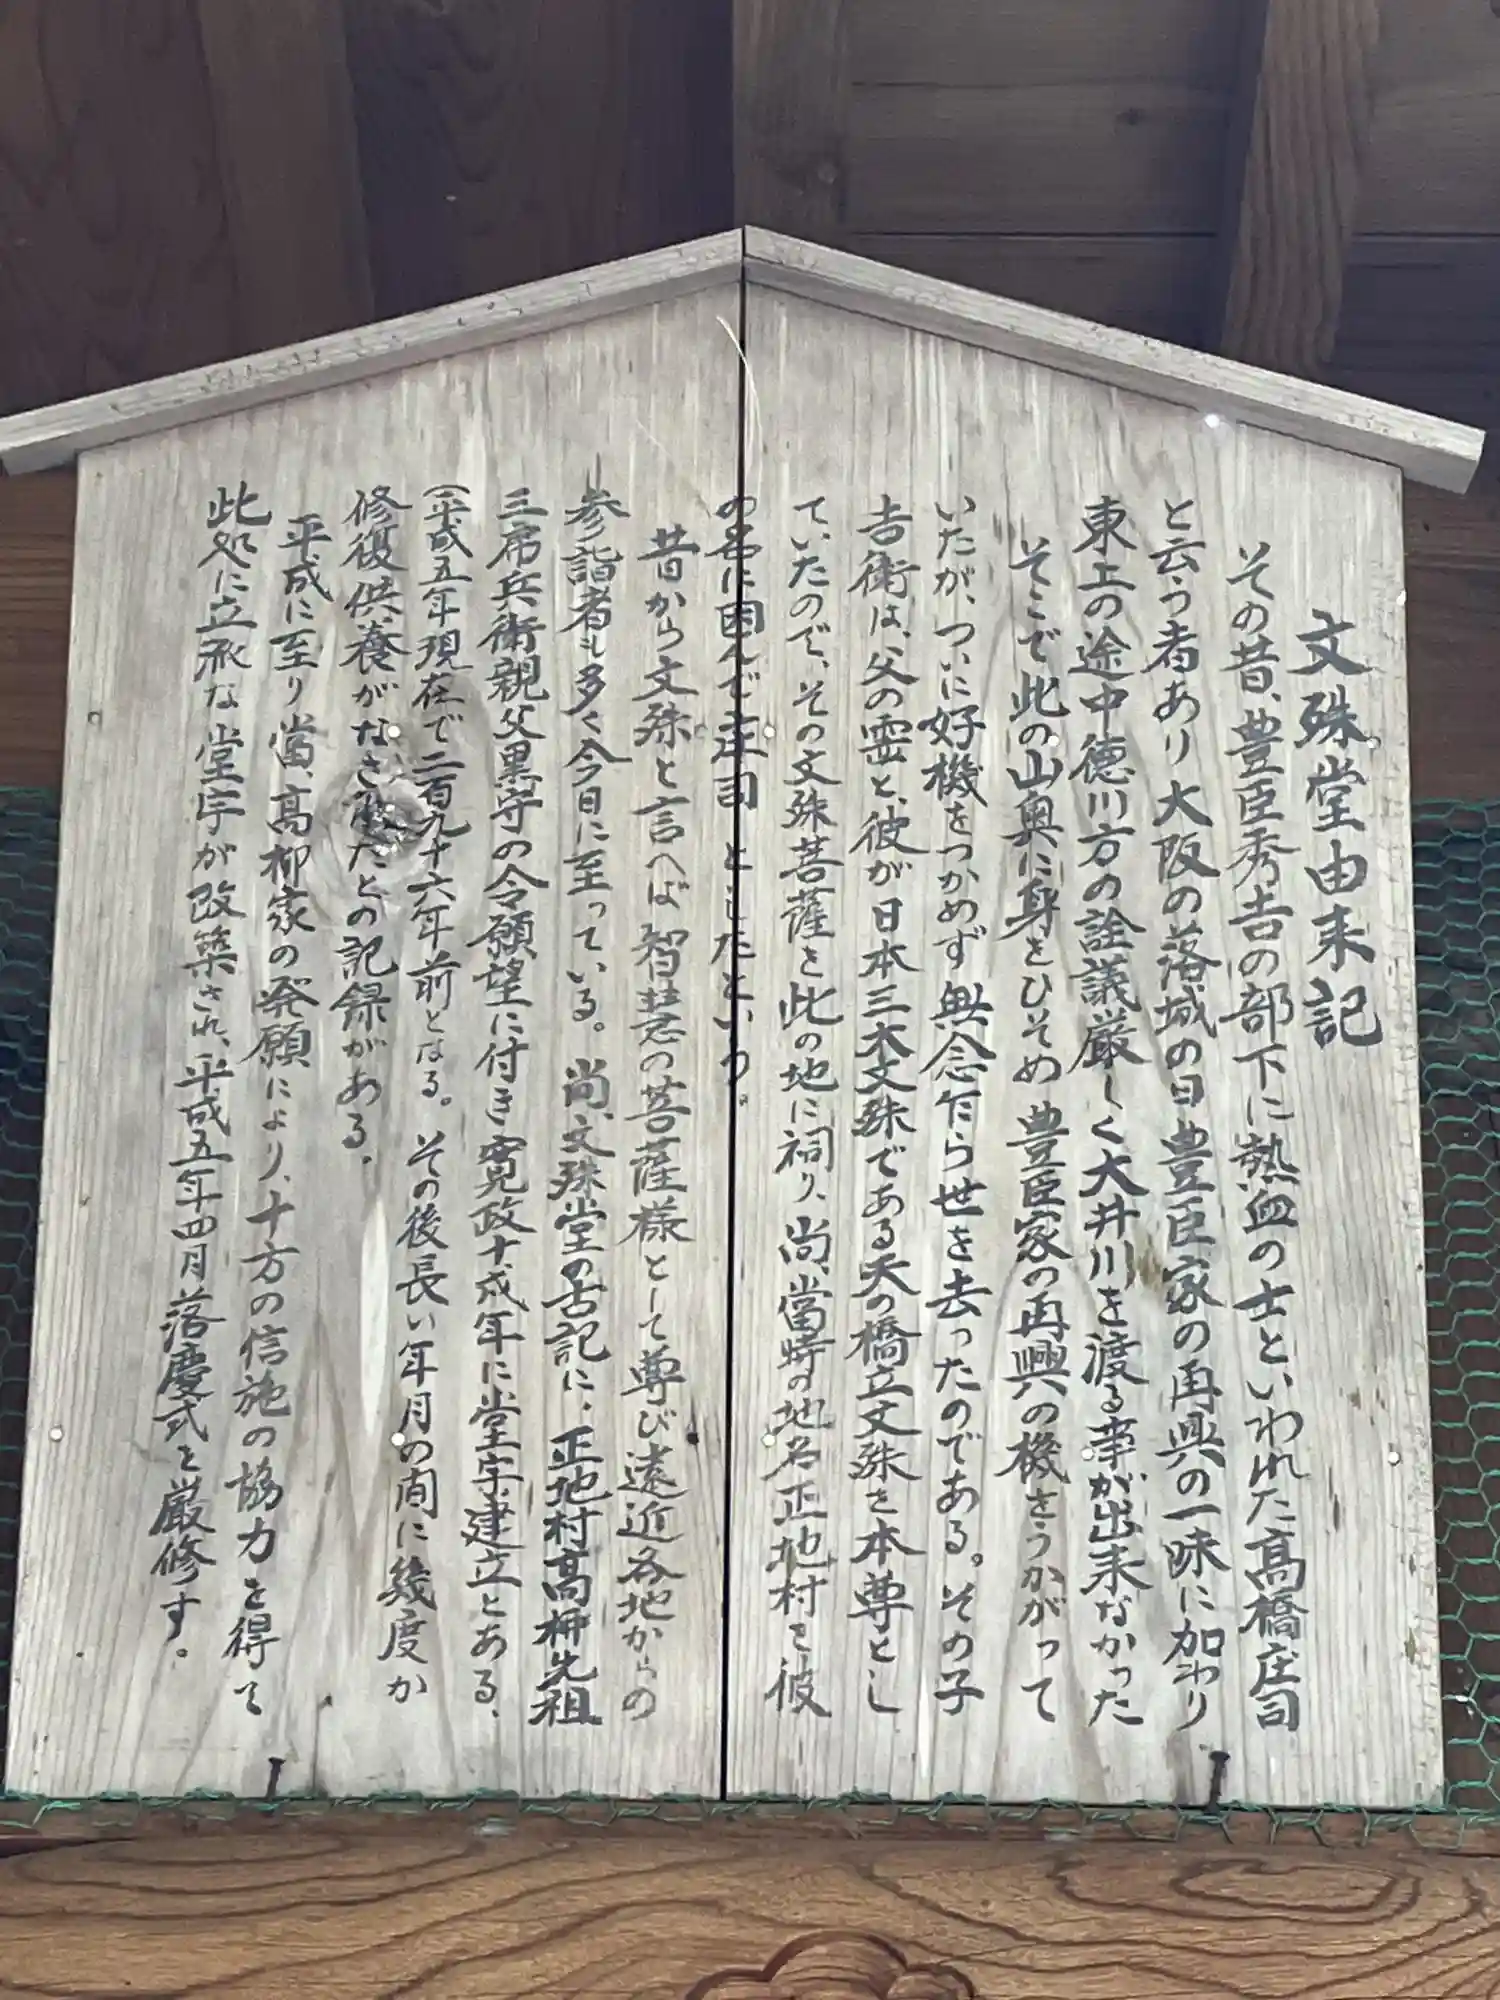 文殊堂由来記
その昔、豊臣秀吉の部下に熱血の士といわれた髙橋庄司
と云う者あり大阪の落城の日豊臣家の再興の一味に加わり
東上の途中徳川方の詮議厳しく大井川を渡る事が出来なかった
そこで此の山奥に身をひそめ豊臣家の再興の機をうかがって
いたが、ついに好機をつかめず無念乍ら世を去ったのである。その子
吉衛は、父の霊と、彼が日本三大文殊である天の橋立文殊を本尊とし
ていたので、その文殊菩薩を此の地に祠り、尚、當時の地名正地村を彼
の名に因んで庄司としたという。
昔から文殊と言へば智慧の菩薩様として尊び遠近各地からの
参詣者も多く今日に至っている。尚、文殊堂の古記に、正地村髙柳先祖
三席兵衛親父黒守の令願望に付き寛政十戌年に堂宇建立とある、
(平成五年現在で二百九十六年前となる。その後長い年月の间に幾度か
修復供養がなされたとの記録がある。
平成に至り當、髙柳家の発願により、十方の信施の協力を得て
此処に立派な堂宇が改築され、平成五年四月落慶式を厳修す。